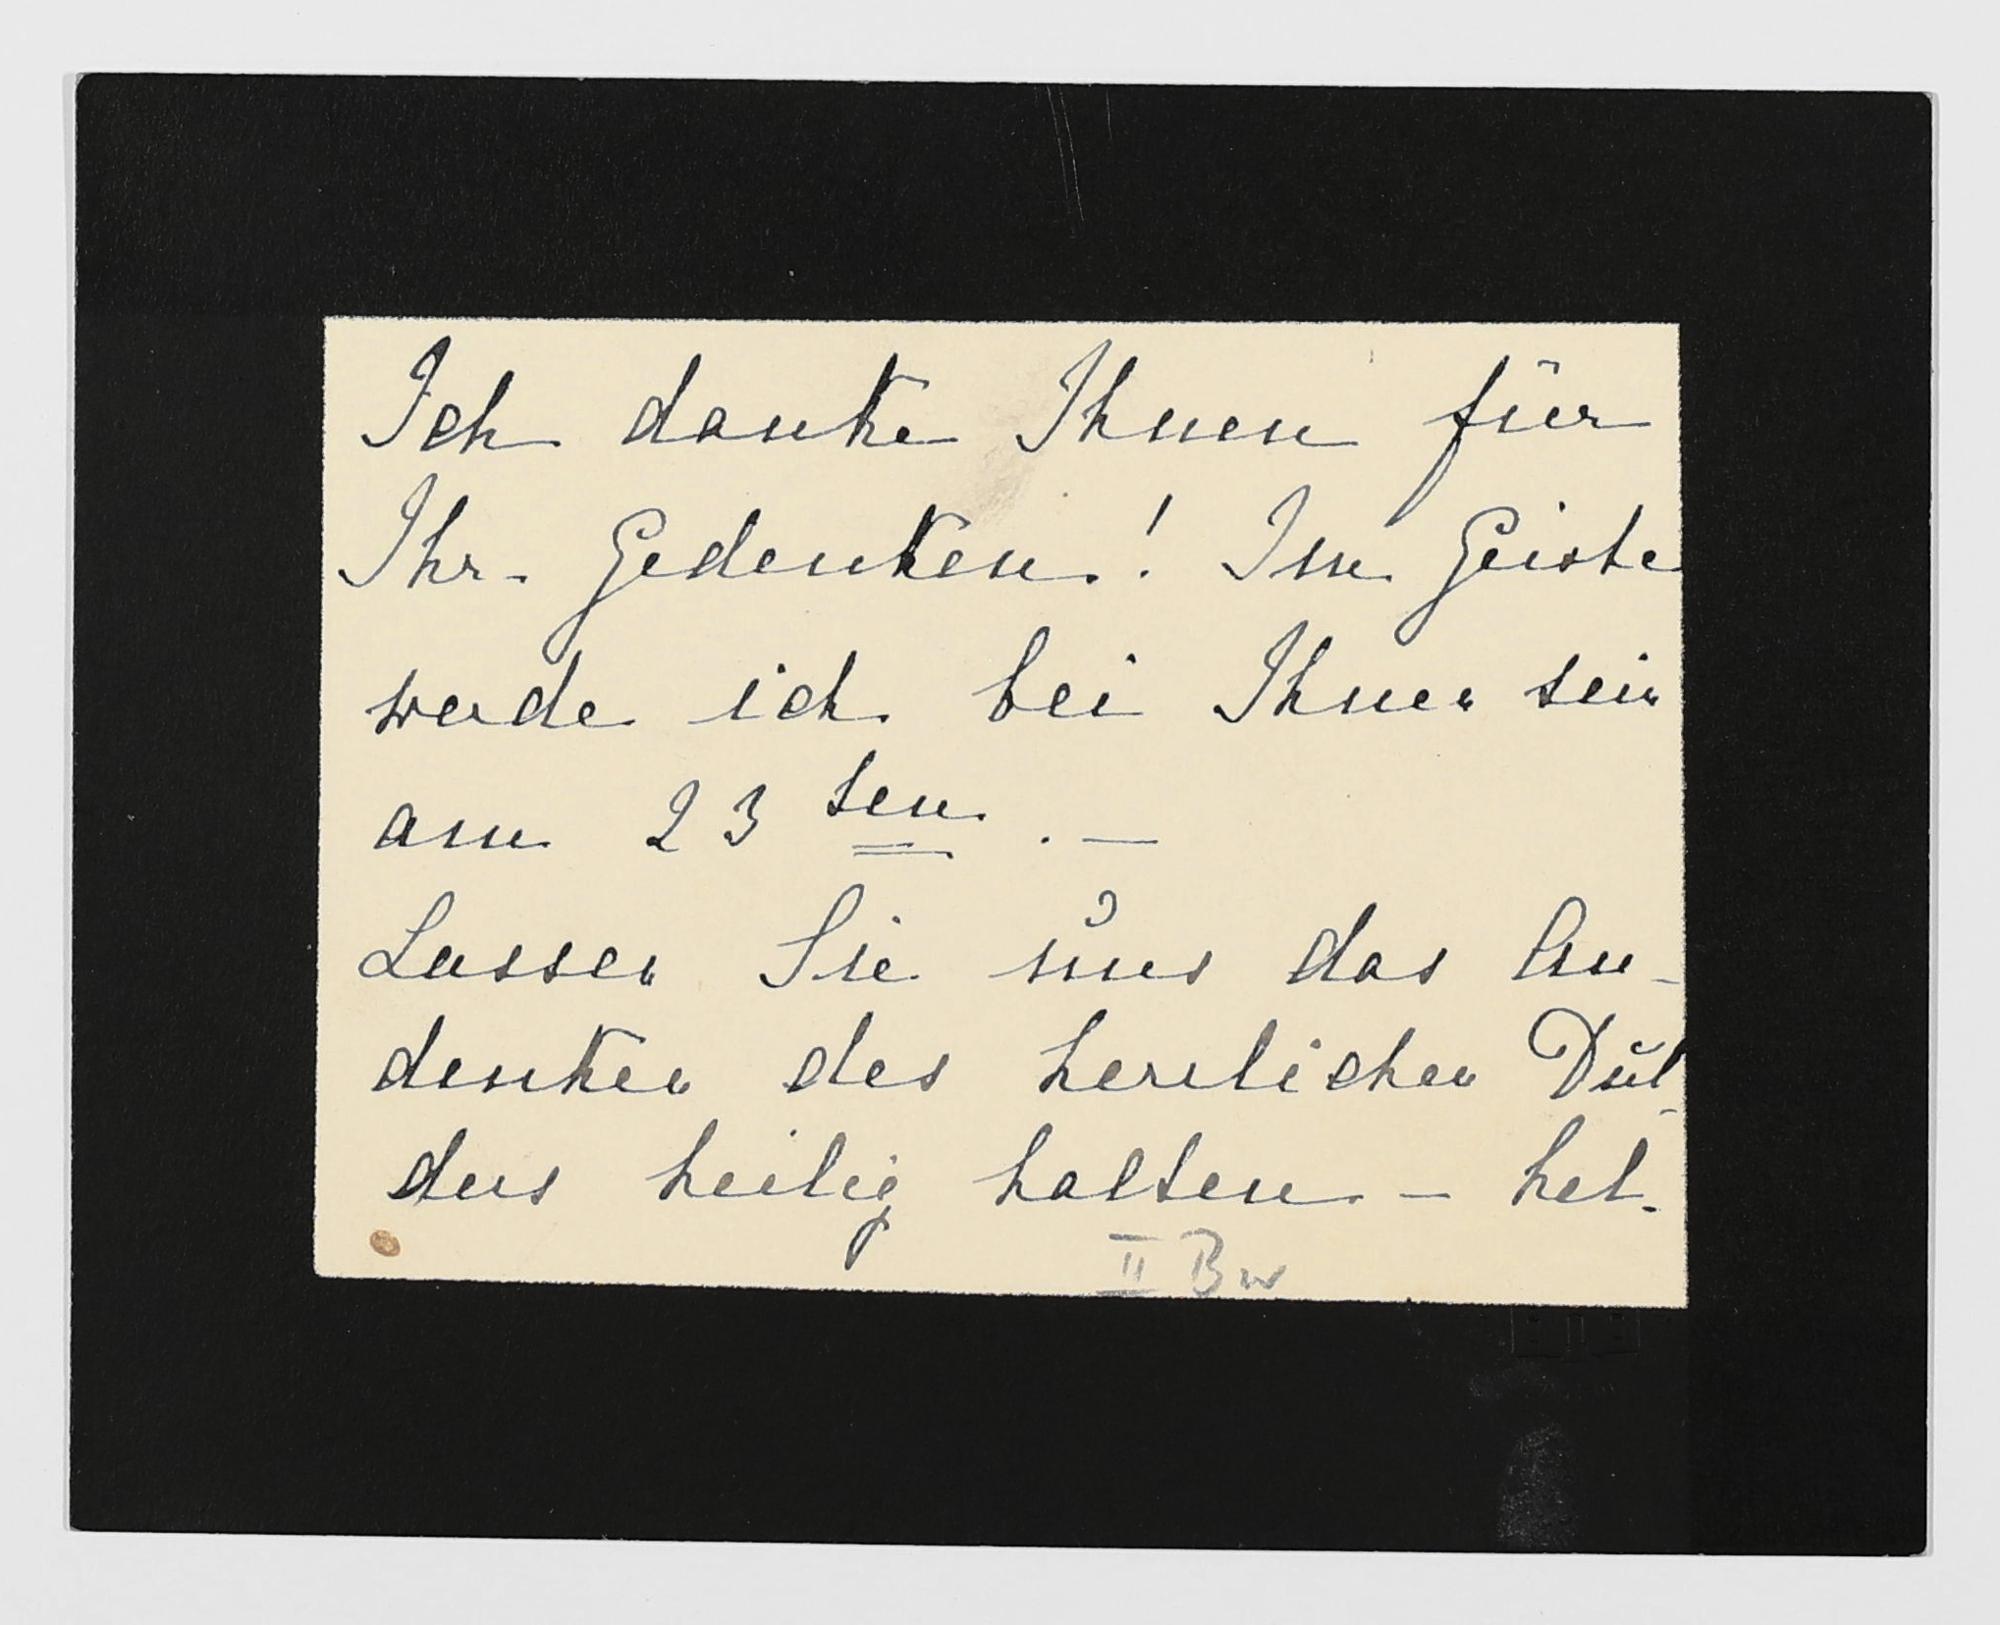 Ich danke Ihnen für
Ihr Gedenken! Im Geiste
werde ich bei Ihnen sein
am 23 ten. —
Lassen Sie uns das An-
denken des herrlichen Dul-
ders heilig halten — hel-
II Bw